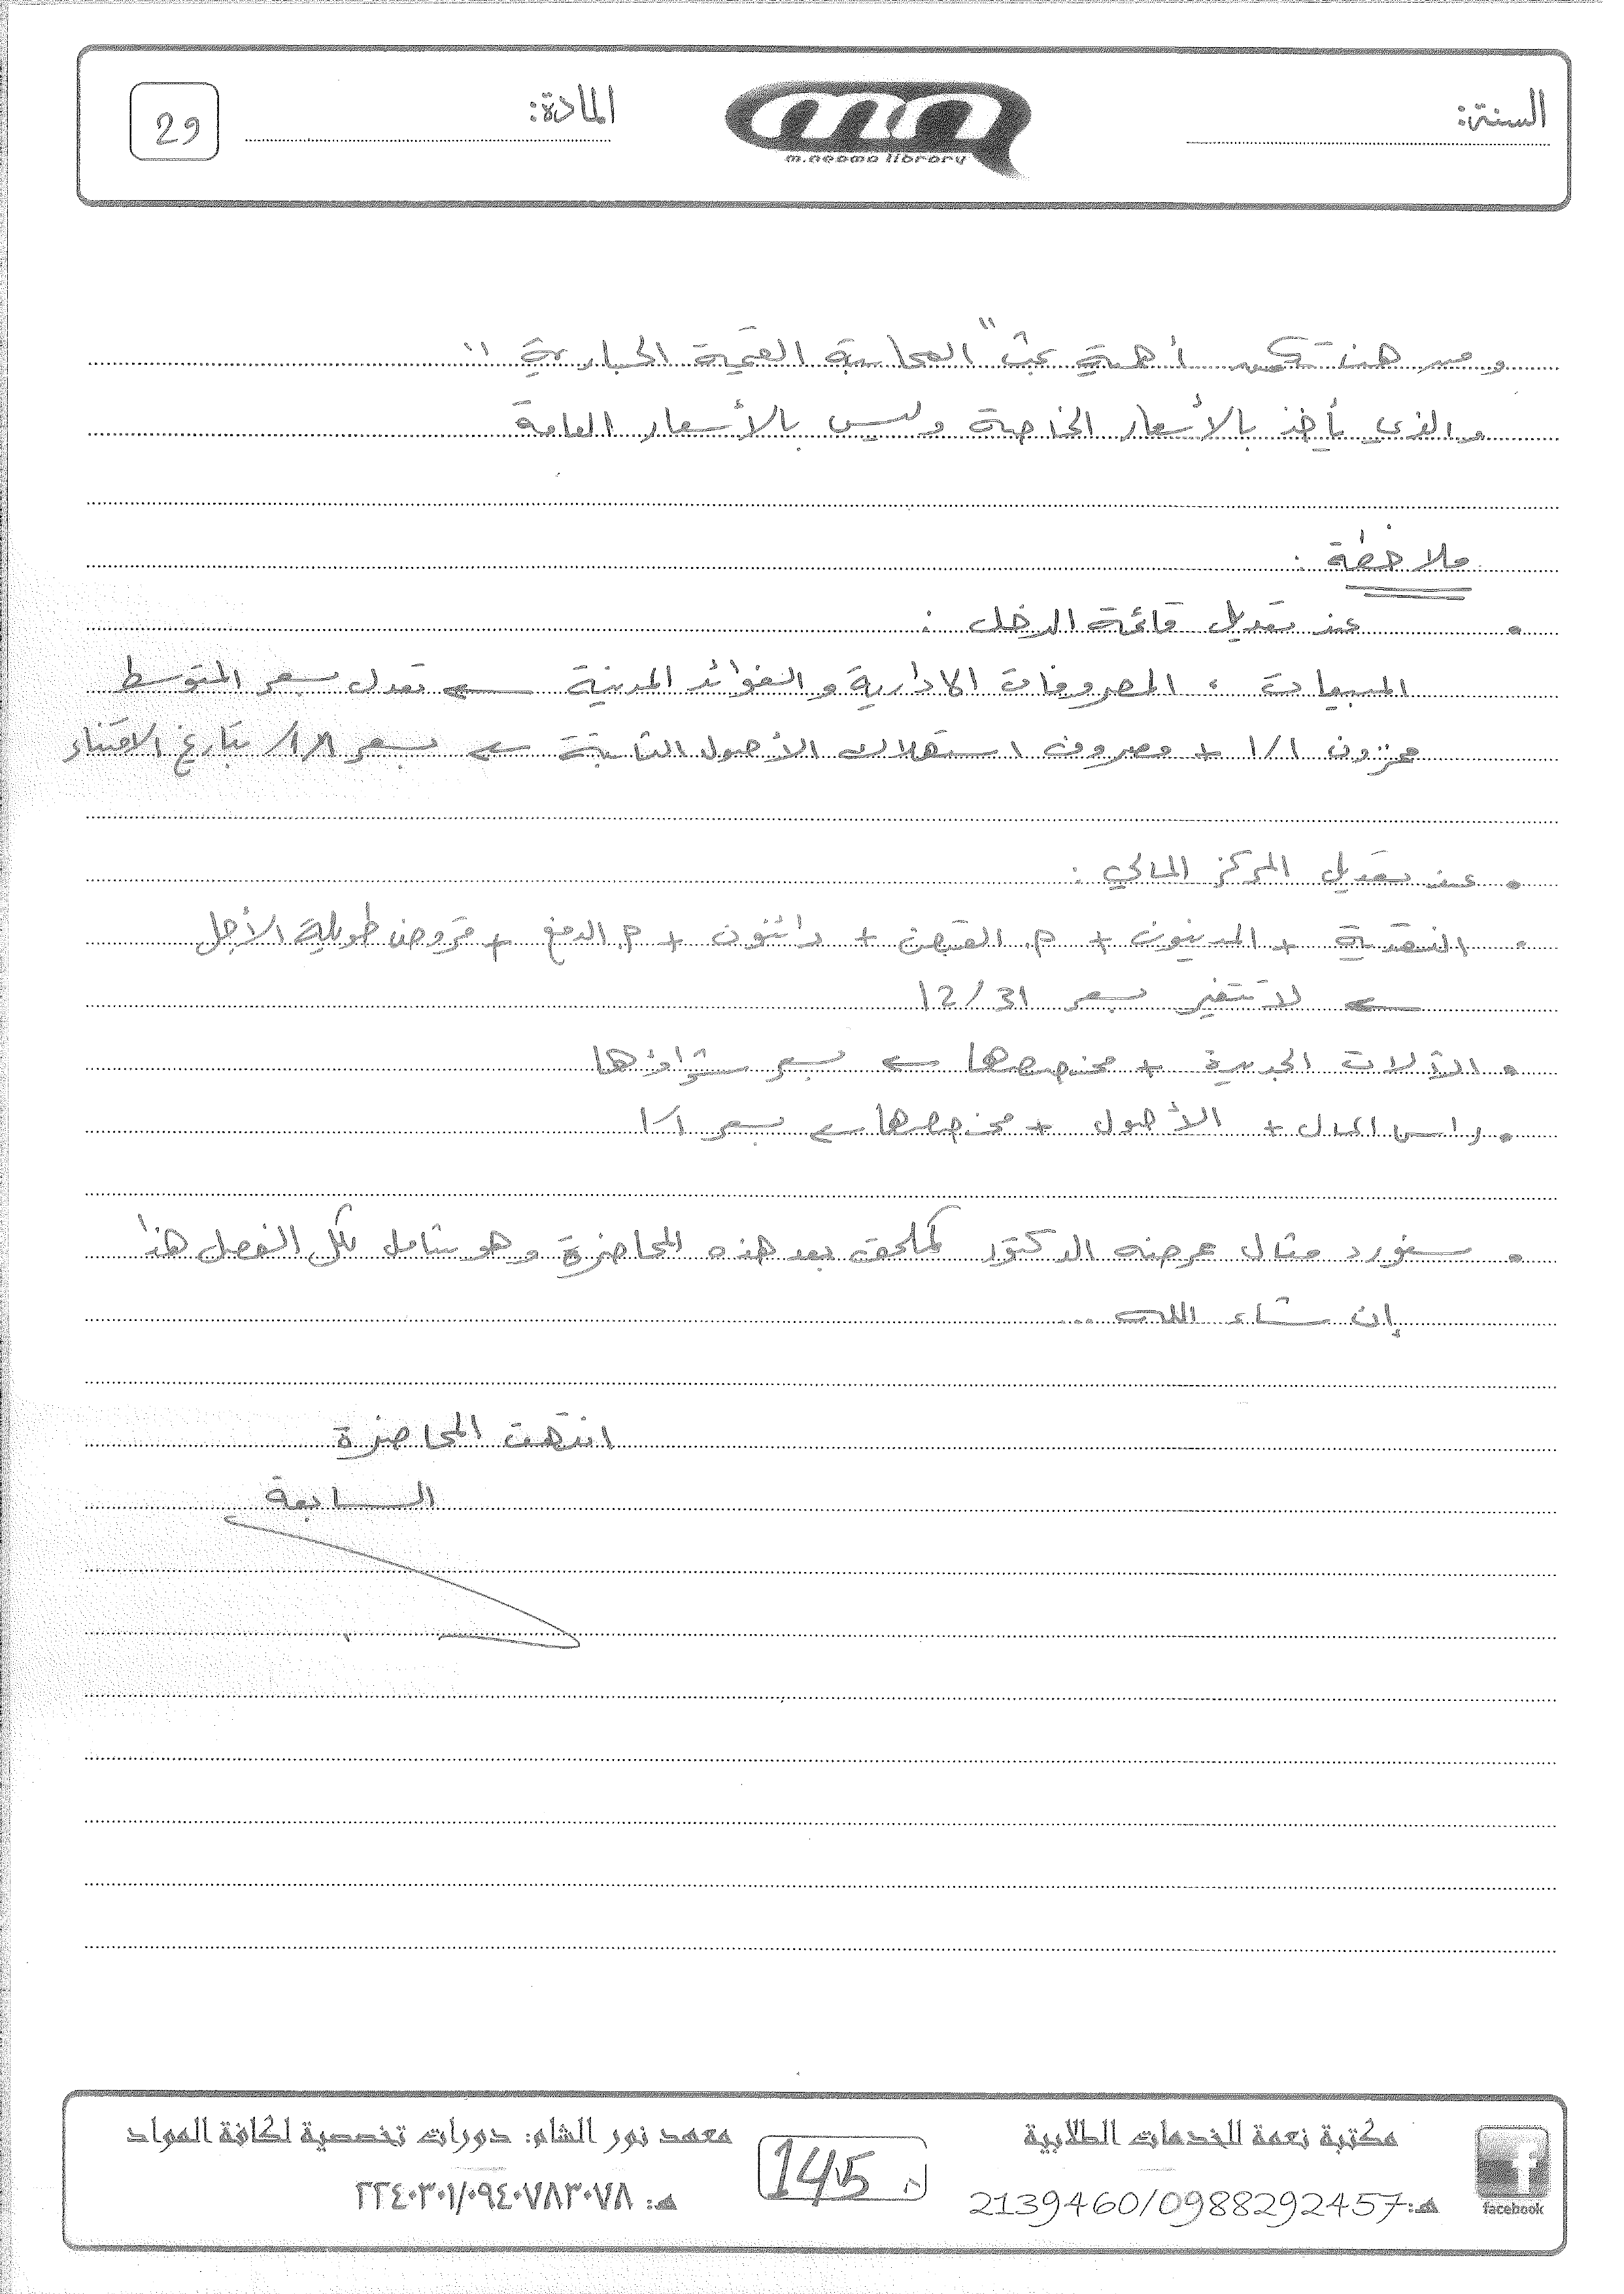 السنة:
mn
m.neama library
المادة:
29
ومن هنا تكمن أهمية بحث "المحاسبة القيمة الجبارية"
والذي يأخذ بالأسعار الخاصة وليس بالأسعار العامة
ملاحظة:
• عند تعديل قائمة الدخل:
المبيعات، المصروفات الادارية والفوائد المدينة ← تعدل بسعر المتوسط
مخزون 1/1 + مصروف استهلاك الأصول الثابتة ← بسعر 1/1/ بتاريخ الاقتناء
• عند تعديل المركز المالي:
• النقدية + المدينون + م. القبض + دائنون + م. الدفع + قروض طويلة الأجل
← لا تتغير بسعر 12/31
• الآلات الجديدة + مخصصها ← بسعر شراؤها
• راس المال + الأصول + مخصصها ← بسعر 1/1
• سنورد مثال عرضه الدكتور كملحق بعد هذه المحاضرة وهو شامل لكل الفصل هذا
إن شاء الله ...
انتهت المحاضرة
السابعة
facebook
مكتبة نعمة للخدمات الطلابية
هـ: 2139460/0988292457
145
معهد نور الشام: دورات تخصصية لكافة المواد
هـ: ٢٢٤٠٣٠١/٠٩٤٠٧٨٣٠٧٨